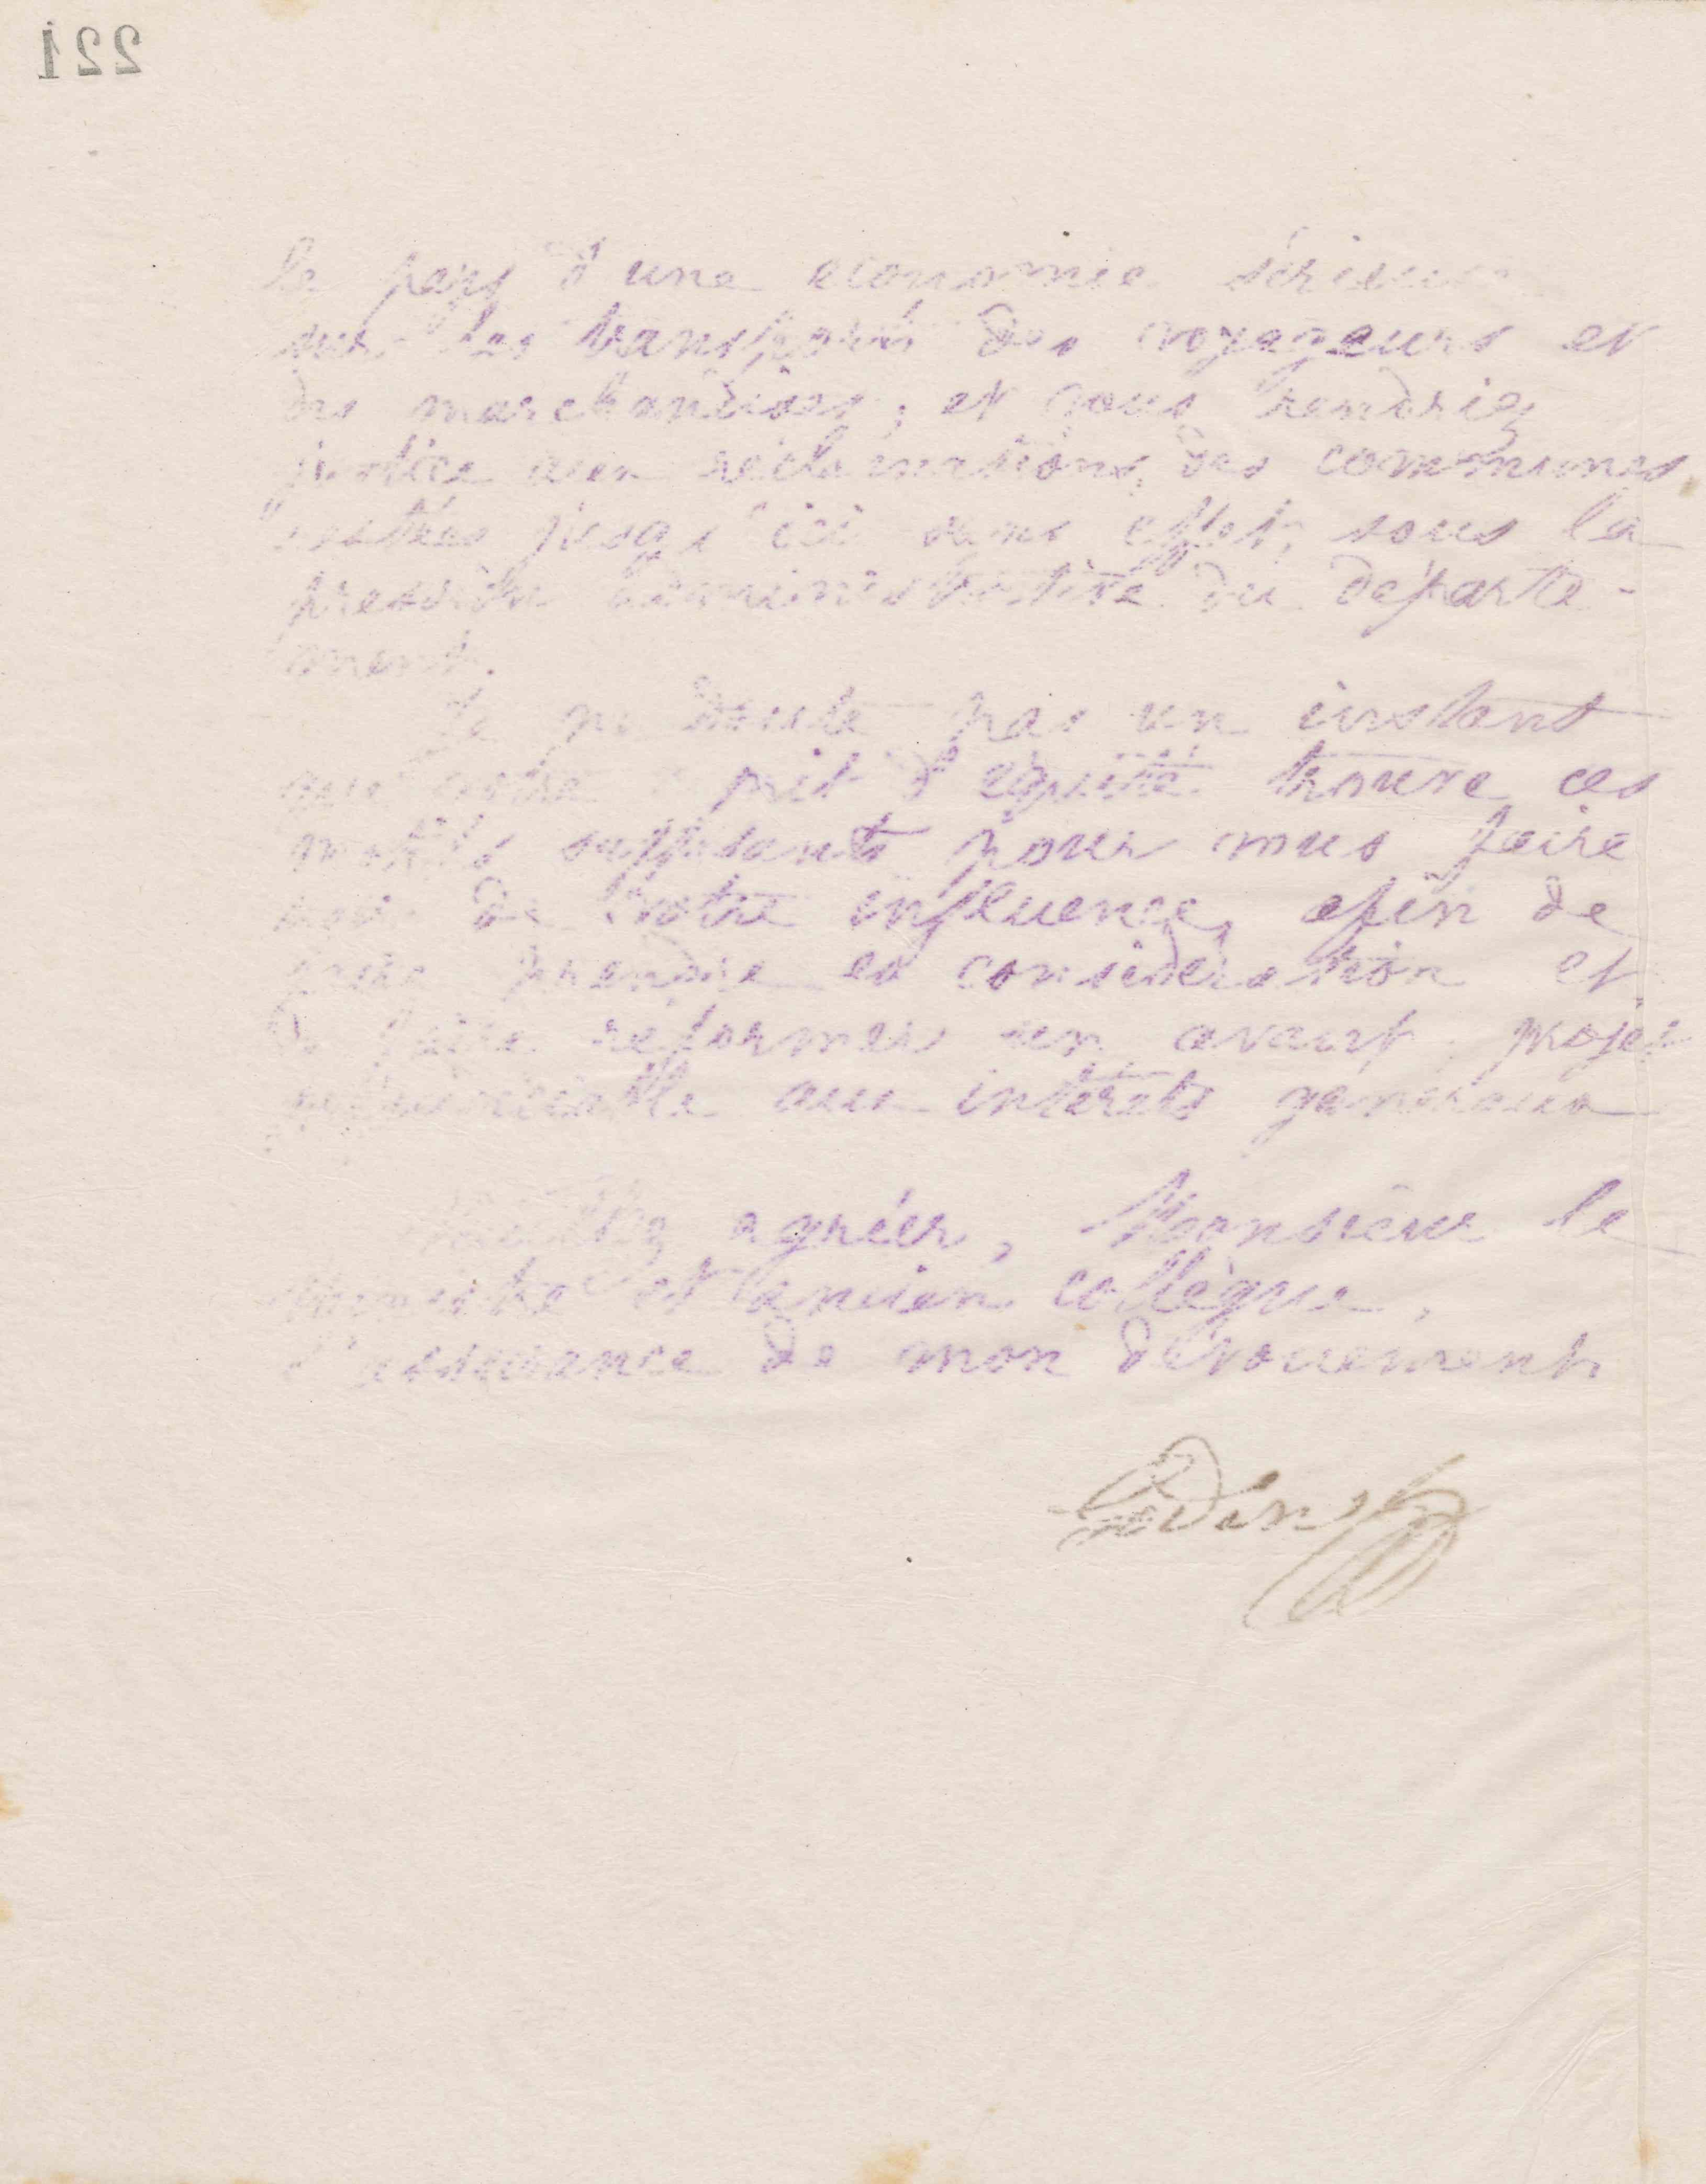 221
le pays d'une economie sérieuse
sur les transports des voyageurs et
des marchandises, et vous rendriez
justice aux réclamations des communes
restées jusqu'ici sans effet, sous la
pression administrative du départe-
ment.
Je ne doute pas un instant
que votre esprit d'équité trouve ces
motifs suffisants pour vous faire
de votre influence, afin de
faire prendre en considération et
de faire reformer un avant projet
aux intérêts généraux
Veuillez agréer, Monsieur le
Ministre et ancien collègue,
l'assurance de mon dévouement
Godin